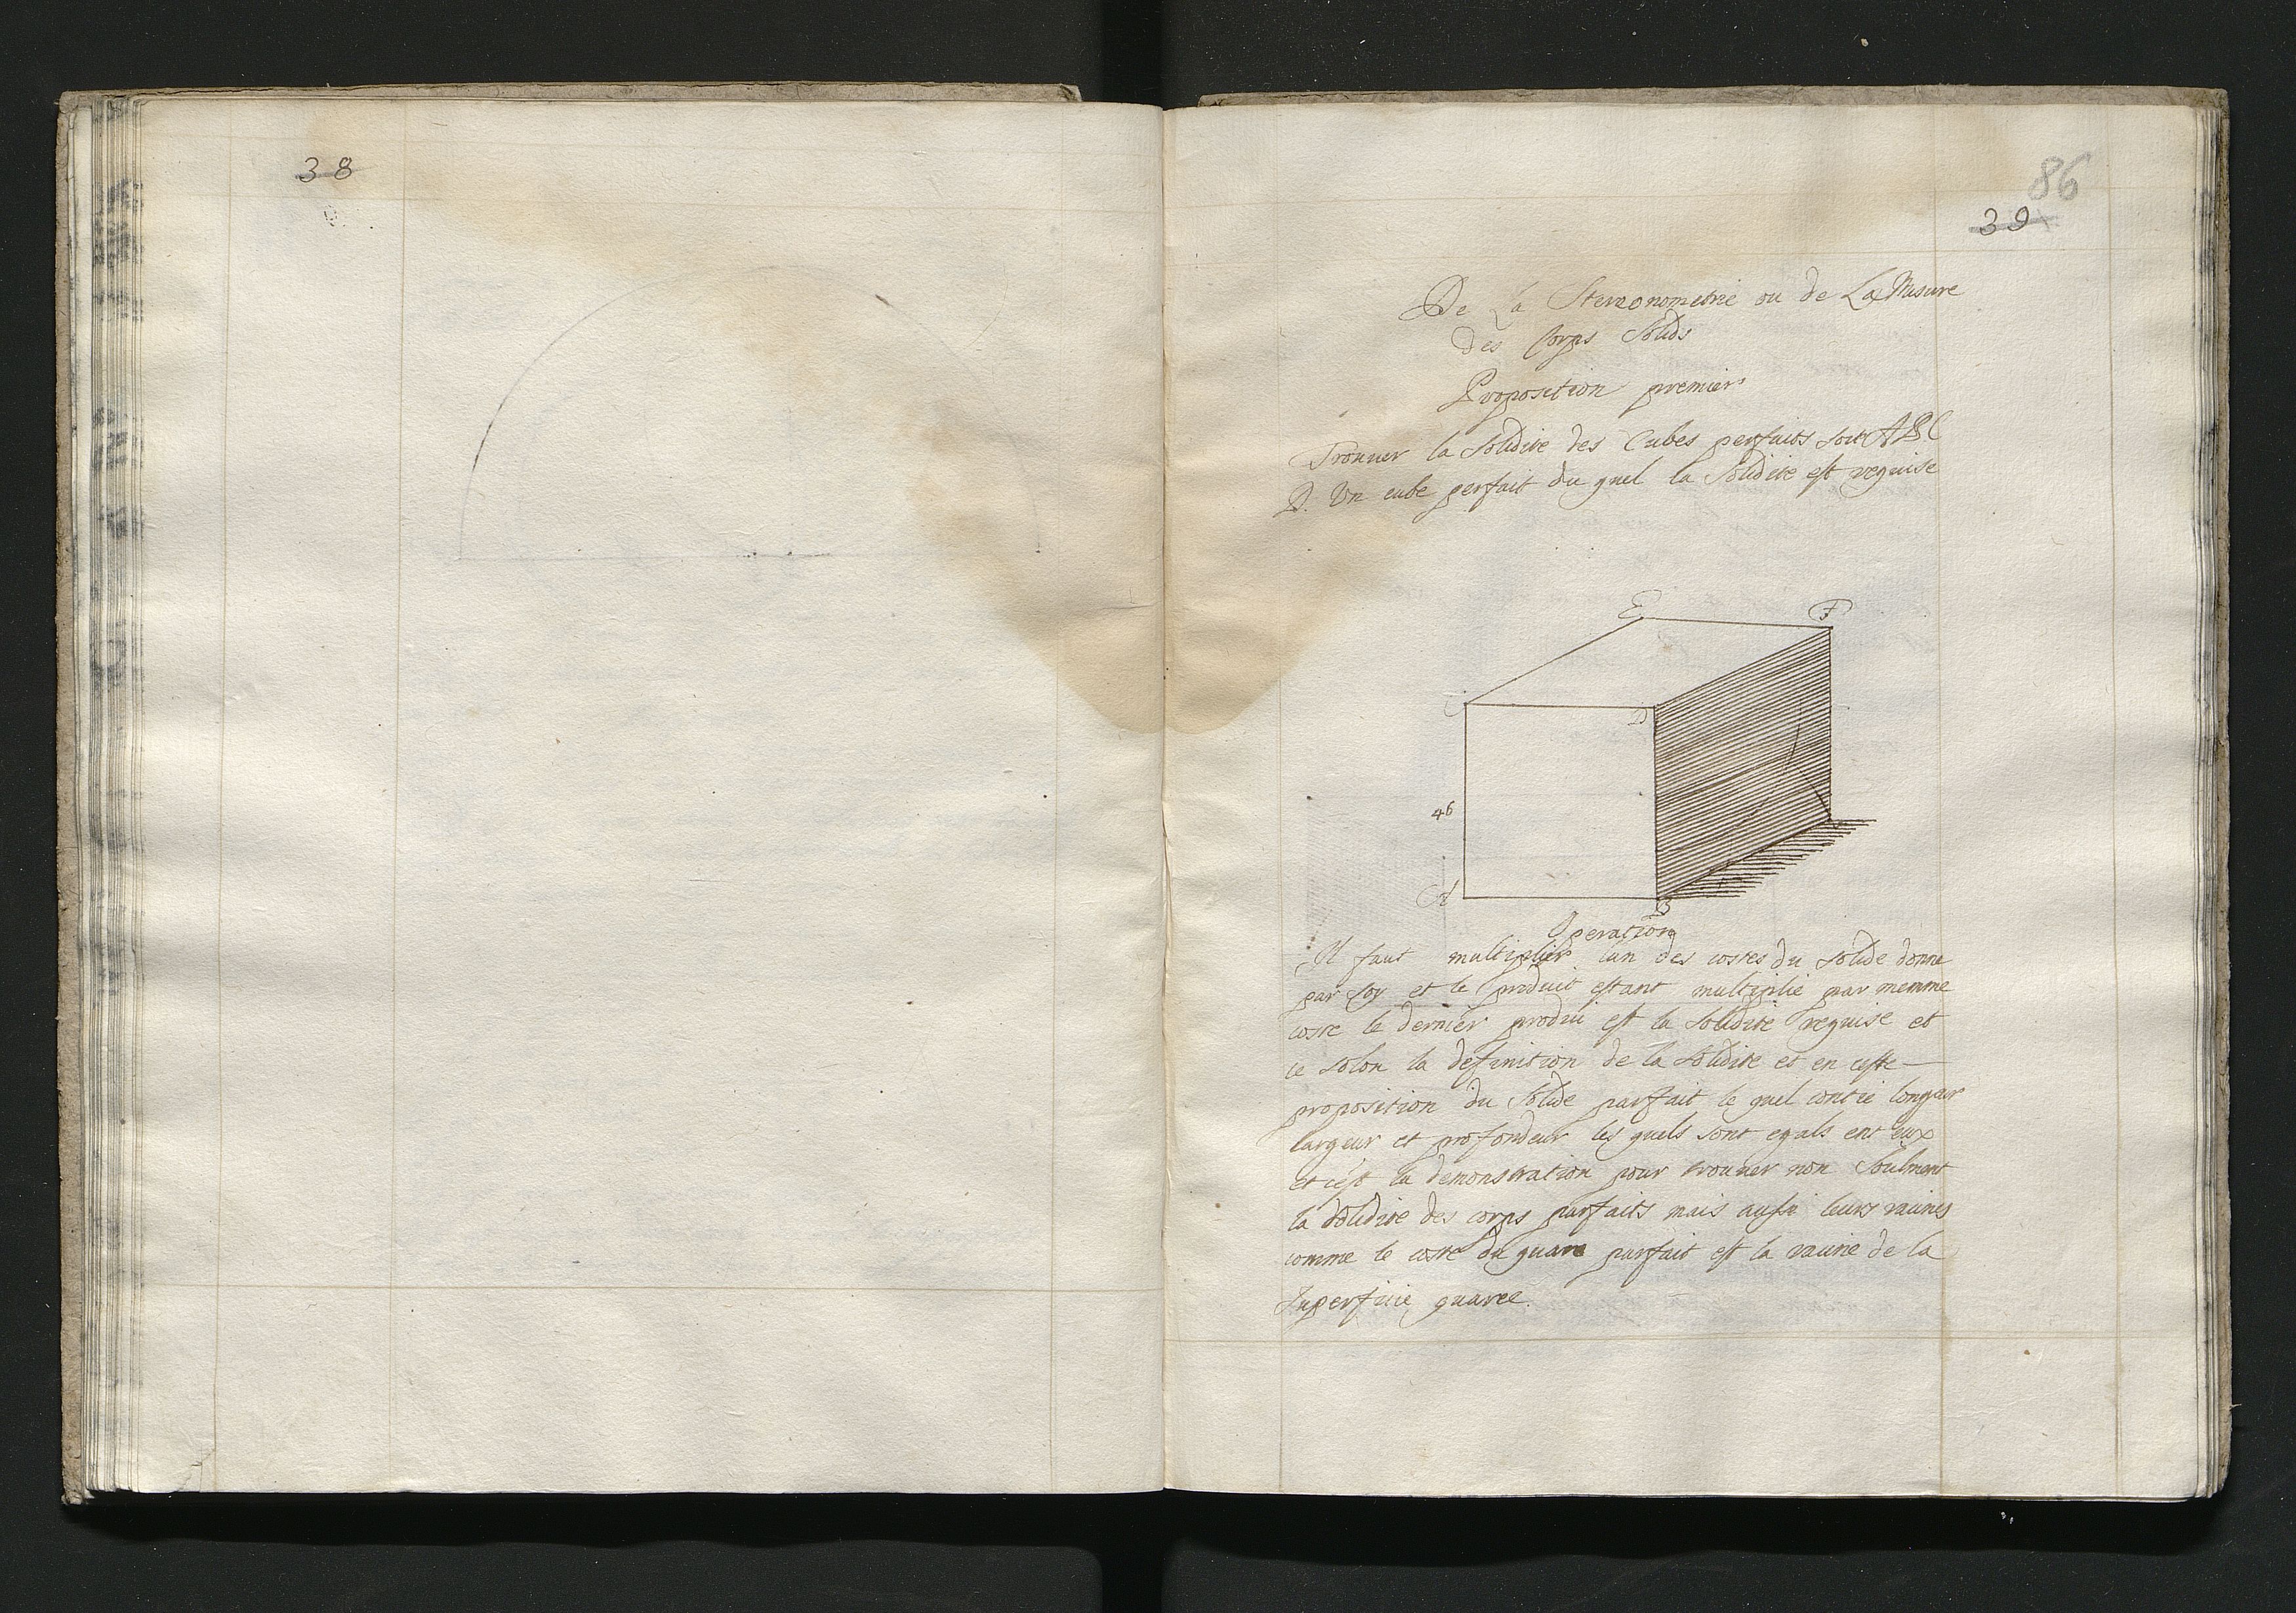 38
86
39
De La Stereonometrie ou de La Mesure
des Corps Solids
Proposition premier
Trouuer la Solidite des Cubes perfaits soit ABC
D. Un cube perfait du quel la Solidite est requise
E F
C D
46
A B
Operation
Il faut multiplier lun des costes du solide donne
par soy et le produit estant multiplie par memme
coste le dernier produi est la solidite requise et
ce solon la definition de la solidite et en ceste
proposition du Solide parfait le quel contie longeur
largeur et profondeur les quels sont egals ent eux
et c'est la demonstration pour trouuer non Soulment
la solidite des corps parfaits mais aussi leurs racines
comme le coste du quare parfait est la racine de la
Superficie quaree.